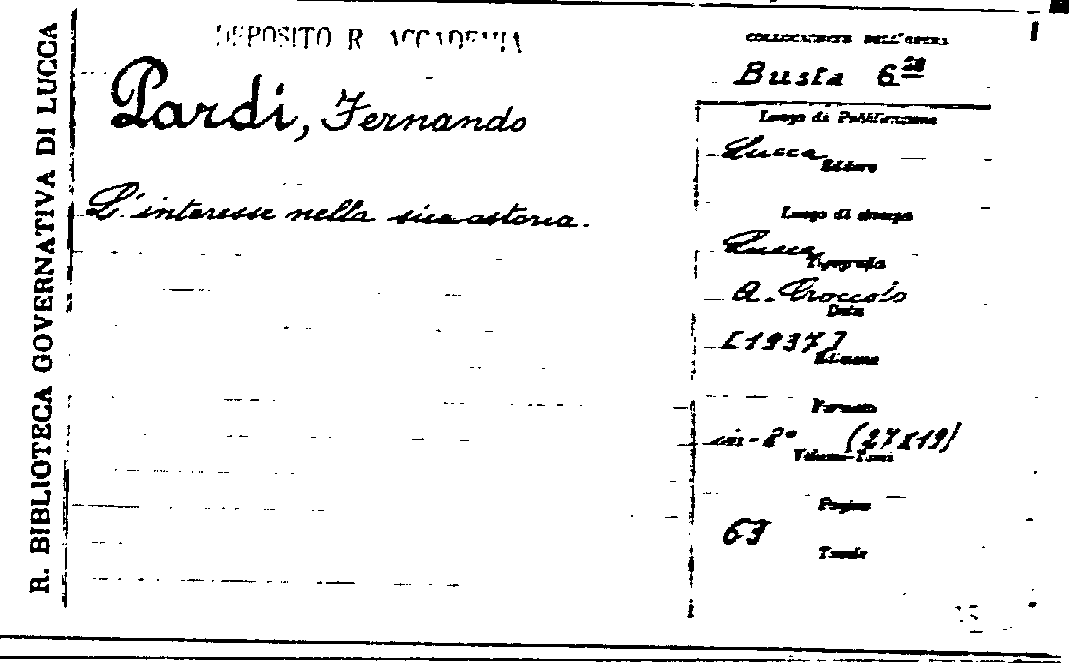 R. BIBLIOTECA GOVERNATIVA DI LUCCA
DEPOSITO R. ACCADEMIA
Pardi, Fernando
L'interesse nella sua storia.
COLLOCAZIONE DELL'OPERA
Busta 6 28
Luogo di Pubblicazione
Lucca
Editore
Luogo di stampa
Lucca
Tipografia
A.
Data
[1937]
Edizione
Formato
in-8° (27x19)
Volume-Tomi
Pagine
63
Tavole